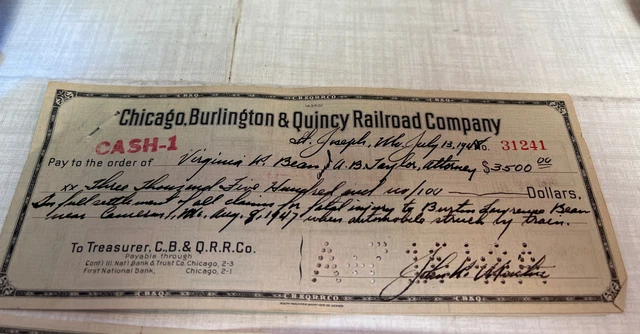 Chicago, Burlington & Quincy Railroad Company
St. Joseph, Mo. July 13, 1948 No. 31241
CASH-1
Pay to the order of Virginia K. Bean & A. B. Taylor, Attorney $3500 00
xx Three Thousand Five Hundred and no/100 Dollars,
In full settlement of all claims for fatal injury to Burtis Bean
near Cameron, Mo. Aug. 8, 1947 when automobile struck by train.
To Treasurer, C.B. & Q.R.R.Co.
Payable through
Cont'l Ill. Nat'l Bank & Trust Co. Chicago, 2-3
First National Bank, Chicago, 2-1
C B & Q R R CO